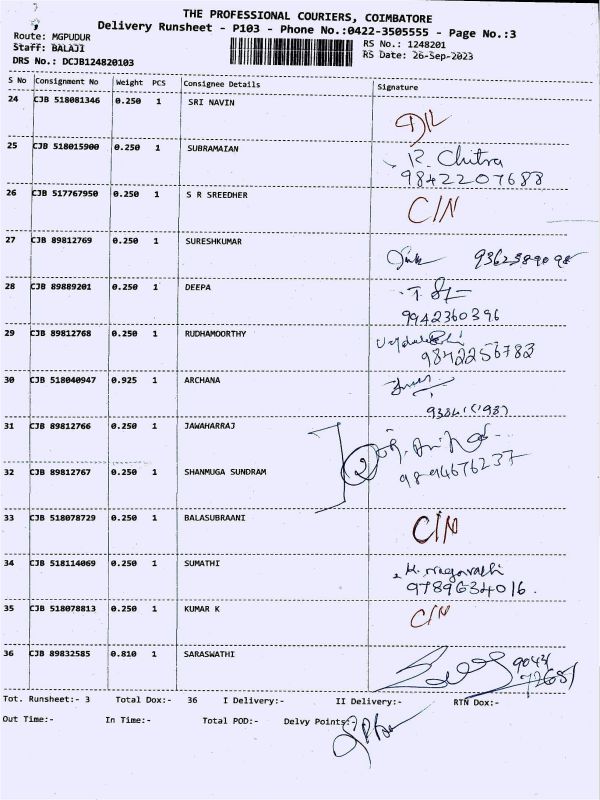 THE PROFESSIONAL COURIERS, COIMBATORE
Delivery Runsheet - P103 - Phone No.:0422-3505555 - Page No.:3
Route: MGPUDUR
Staff: BALAJI
DRS No.: DCJB124820103
RS No.: 1248201
RS Date: 26-Sep-2023
S No Consignment No Weight PCS Consignee Details Signature
24 CJB 518081346 0.250 1 SRI NAVIN D/L
25 CJB 518015900 0.250 1 SUBRAMAIAN R. Chitra
9842207688
26 CJB 517767950 0.250 1 S R SREEDHER C/N
27 CJB 89812769 0.250 1 SURESHKUMAR
28 CJB 89889201 0.250 1 DEEPA
9942360396
29 CJB 89812768 0.250 1 RUDHAMOORTHY
9842256783
30 CJB 518040947 0.925 1 ARCHANA
31 CJB 89812766 0.250 1 JAWAHARRAJ
2
32 CJB 89812767 0.250 1 SHANMUGA SUNDRAM 9894676237
33 CJB 518078729 0.250 1 BALASUBRAANI C/N
34 CJB 518114069 0.250 1 SUMATHI
9789634016.
35 CJB 518078813 0.250 1 KUMAR K C/N
36 CJB 89832585 0.810 1 SARASWATHI
Tot. Runsheet:- 3 Total Dox:- 36 I Delivery:- II Delivery:- RTN Dox:-
Out Time:- In Time:- Total POD:- Delvy Points:-